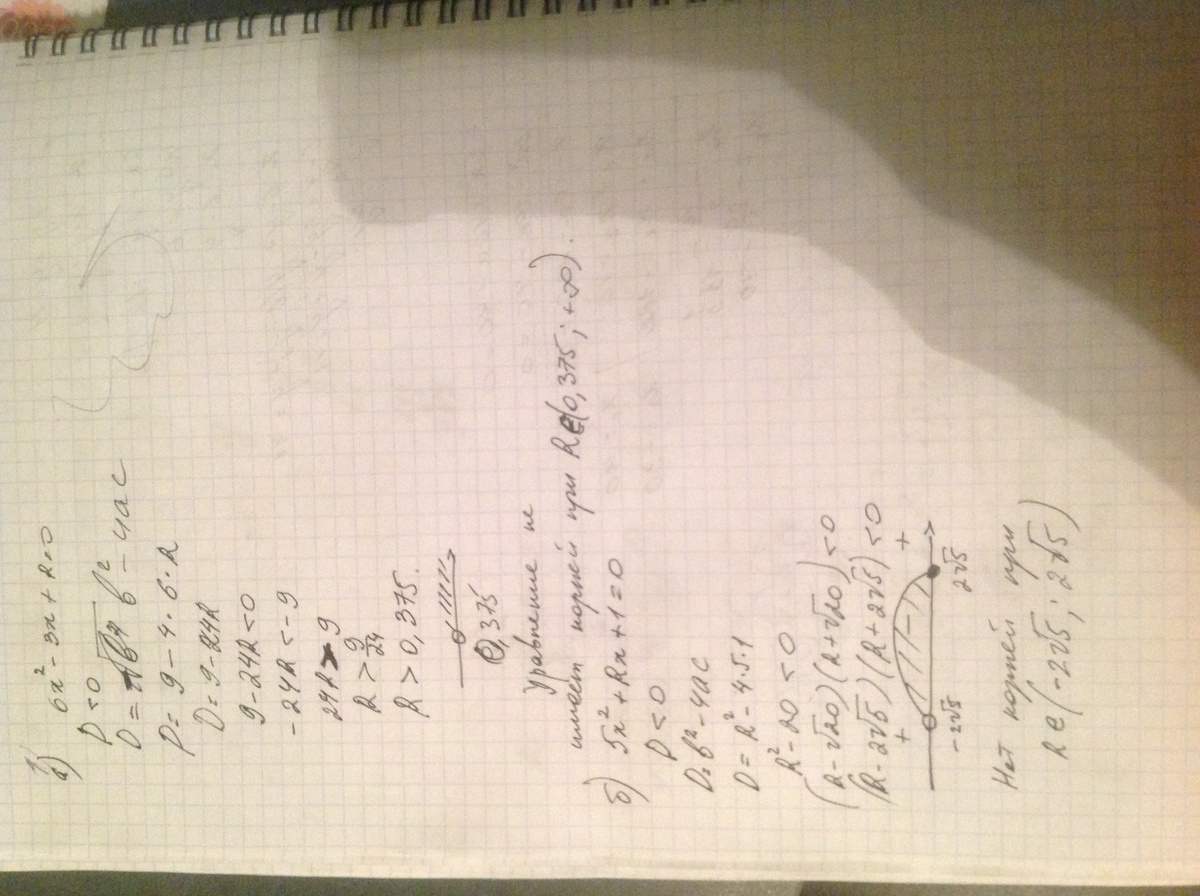 а) 6x² - 3x + R = 0
D < 0
D = b² - 4ac
D = 9 - 4 · 6 · R
D = 9 - 24R
9 - 24R < 0
- 24R < - 9
24R > 9
R > 9/24
R > 0,375.
0,375
Уравнение не
имеет корней при R∈(0,375; +∞).
б) 5x² + Rx + 1 = 0
D < 0
D = b² - 4ac
D = R² - 4·5·1
R² - 20 < 0
(R - √20)(R + √20) < 0
(R - 2√5)(R + 2√5) < 0
+ - +
-2√5 2√5
Нет корней при
R ∈ (-2√5; 2√5)